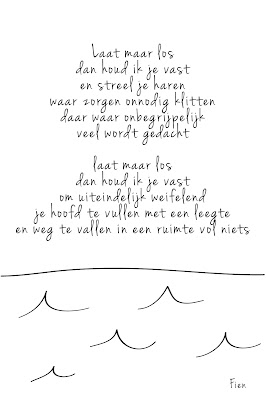 Laat maar los
dan houd ik je vast
en streel je haren
waar zorgen onnodig klitten
daar waar onbegrijpelijk
veel wordt gedacht
laat maar los
dan houd ik je vast
om uiteindelijk weifelend
je hoofd te vullen met een leegte
en weg te vallen in een ruimte vol niets
Fien